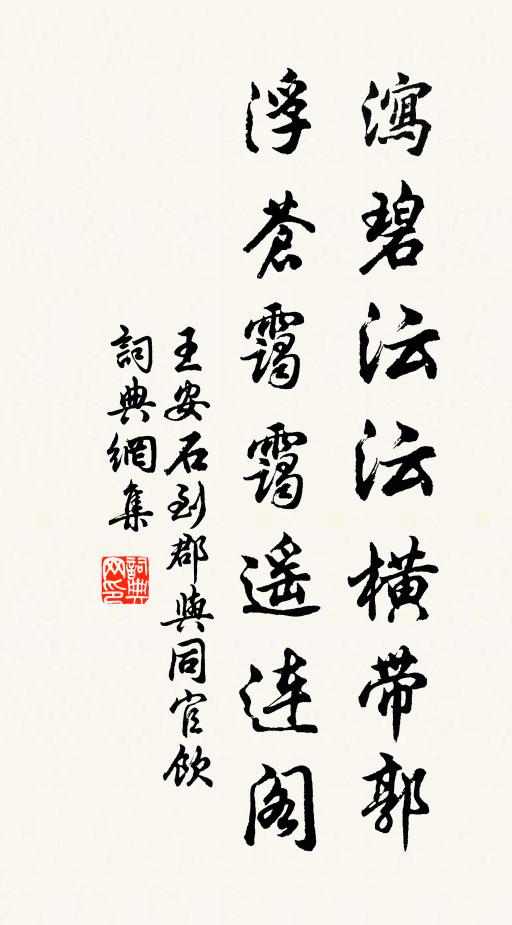 瀉碧沄沄橫带郭
浮蒼靄靄遥连阁
王安石到郡與同官飲
詞典網集
詞典网印